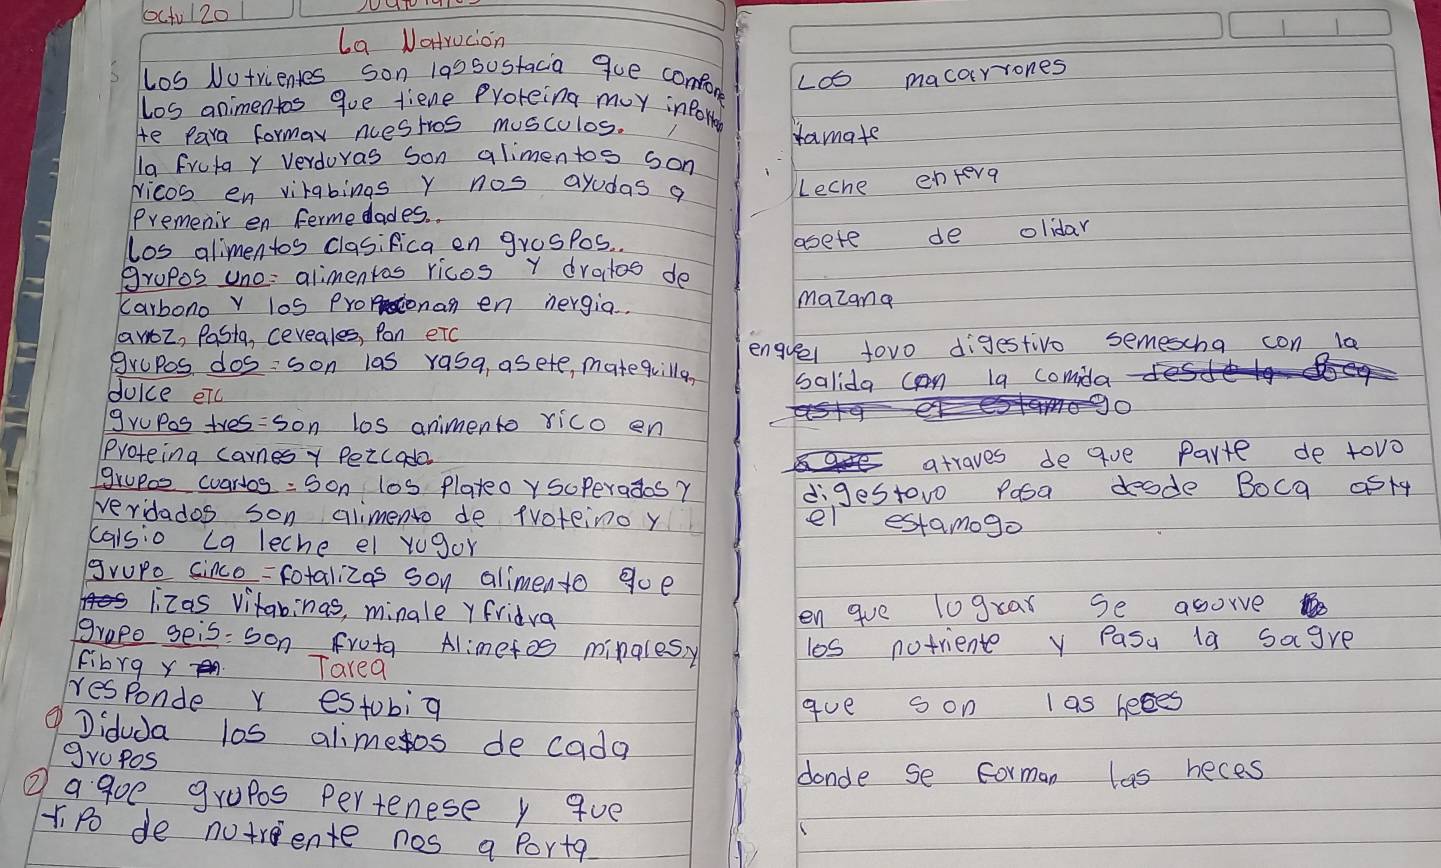 octu 120
La Notrucion
Los Nutrientes son lassustacia que compone
Los animentos que tiene Proteina muy inportan
te Para formar nuestros musculos.
la fruta y verduras son alimentos son
ricos en vitabinas y nos ayudas a
Premenir en fermedades..
Los alimentos clasifica en gruspos..
grupos uno= alimentos ricos y dratos de
carbono y los Proporcionan en nergia..
arroz, Pasta, cereales, Pan etc
grupos dos = son las rasa, asete, mateguilla,
dulce etc
grupos tres= son los animento rico en
Proteina carnes y Pezcado.
grupos cuartos = son los Plateo y superados y
veridados son alimento de Proteino y
calsio La leche el yugur
grupo cinco = fotalizas son alimento que
lizas vitabinas, minale y fridra
grupo seis= son fruta Alimetos minales y
fibra y
Tarea
responde y estubia
① Diduda los alimetos de cada
grupos
② a que grupos Pertenese y que
tipo de nutriente nos a Porta
Los macarrones
tamate
Leche entera
asete de olidar
mazana
enquel tovo digestivo semescha con la
salida con la comida desde la boca
asta el estamogo
atraves de que Parte de tovo
digestovo Pasa desde Boca asta
el estamogo
en que lograr se asorve
los nutriente y Pasa la sagre
que son las heces
donde se forman las heces